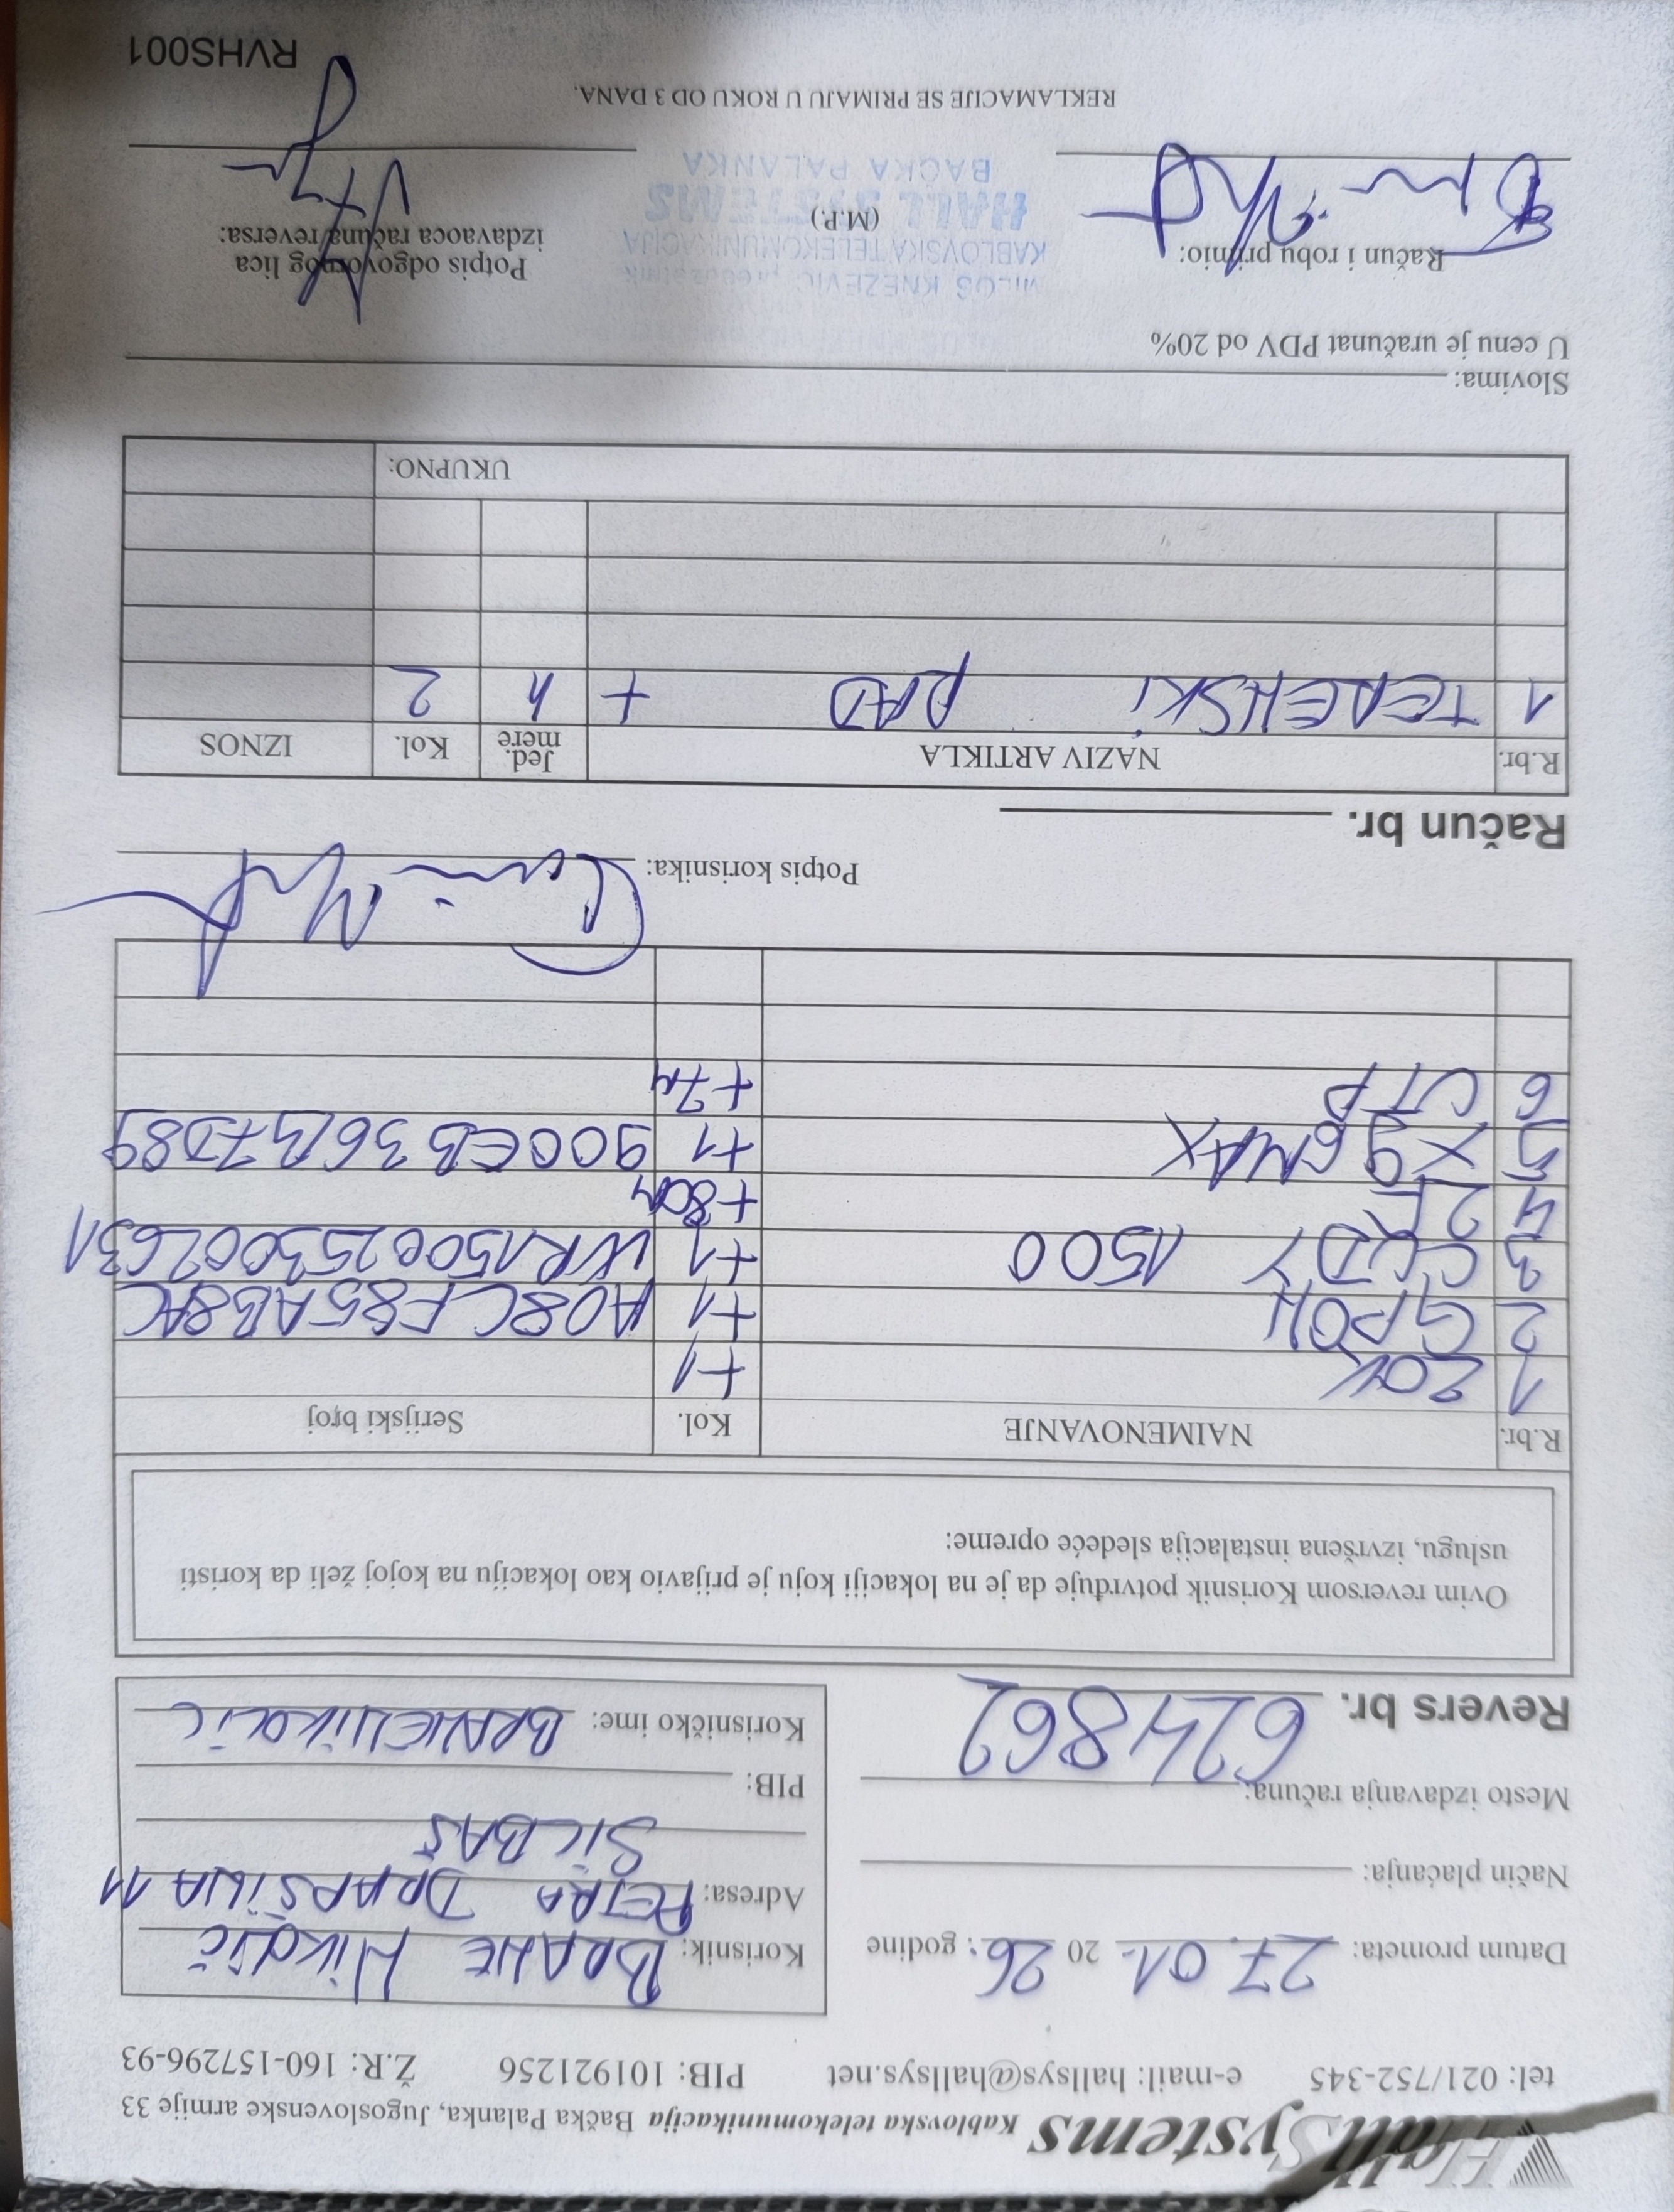 HallSystems Kablovska telekomunikacija Bačka Palanka, Jugoslovenske armije 33
tel: 021/752-345 e-mail: hallsys@hallsys.net PIB: 101921256 Ž.R: 160-157296-93
Datum prometa: 27.01. 2026. godine
Način plaćanja:
Mesto izdavanja računa:
Revers br. 624862
Korisnik: BRANE NIKOLIĆ
Adresa: PETRA DRAPŠINA 11
SILBAŠ
PIB:
Korisničko ime: BRANENIKOLIC
Ovim reversom Korisnik potvrđuje da je na lokaciji koju je prijavio kao lokaciju na kojoj želi da koristi
uslugu, izvršena instalacija sledeće opreme:
R.br. NAIMENOVANJE Kol. Serijski broj
1 ZOK +1
2 GPON +1 A08CF85AB8AC
3 CUDY 1500 +1 WR1500253002631
4 2F +80m
5 X96MAX +1 900EB36B7D89
6 UTP +7m
Potpis korisnika:
Račun br.
R.br. NAZIV ARTIKLA Jed. mere Kol. IZNOS
1 TERENSKI RAD + h 2
UKUPNO:
Slovima:
U cenu je uračunat PDV od 20%
Račun i robu primio:
(M.P.)
MILOŠ KNEŽEVIĆ preduzetnik
KABLOVSKA TELEKOMUNIKACIJA
HALL SYSTEMS
BAČKA PALANKA
Potpis odgovornog lica
izdavaoca računa/reversa:
REKLAMACIJE SE PRIMAJU U ROKU OD 3 DANA.
RVHS001